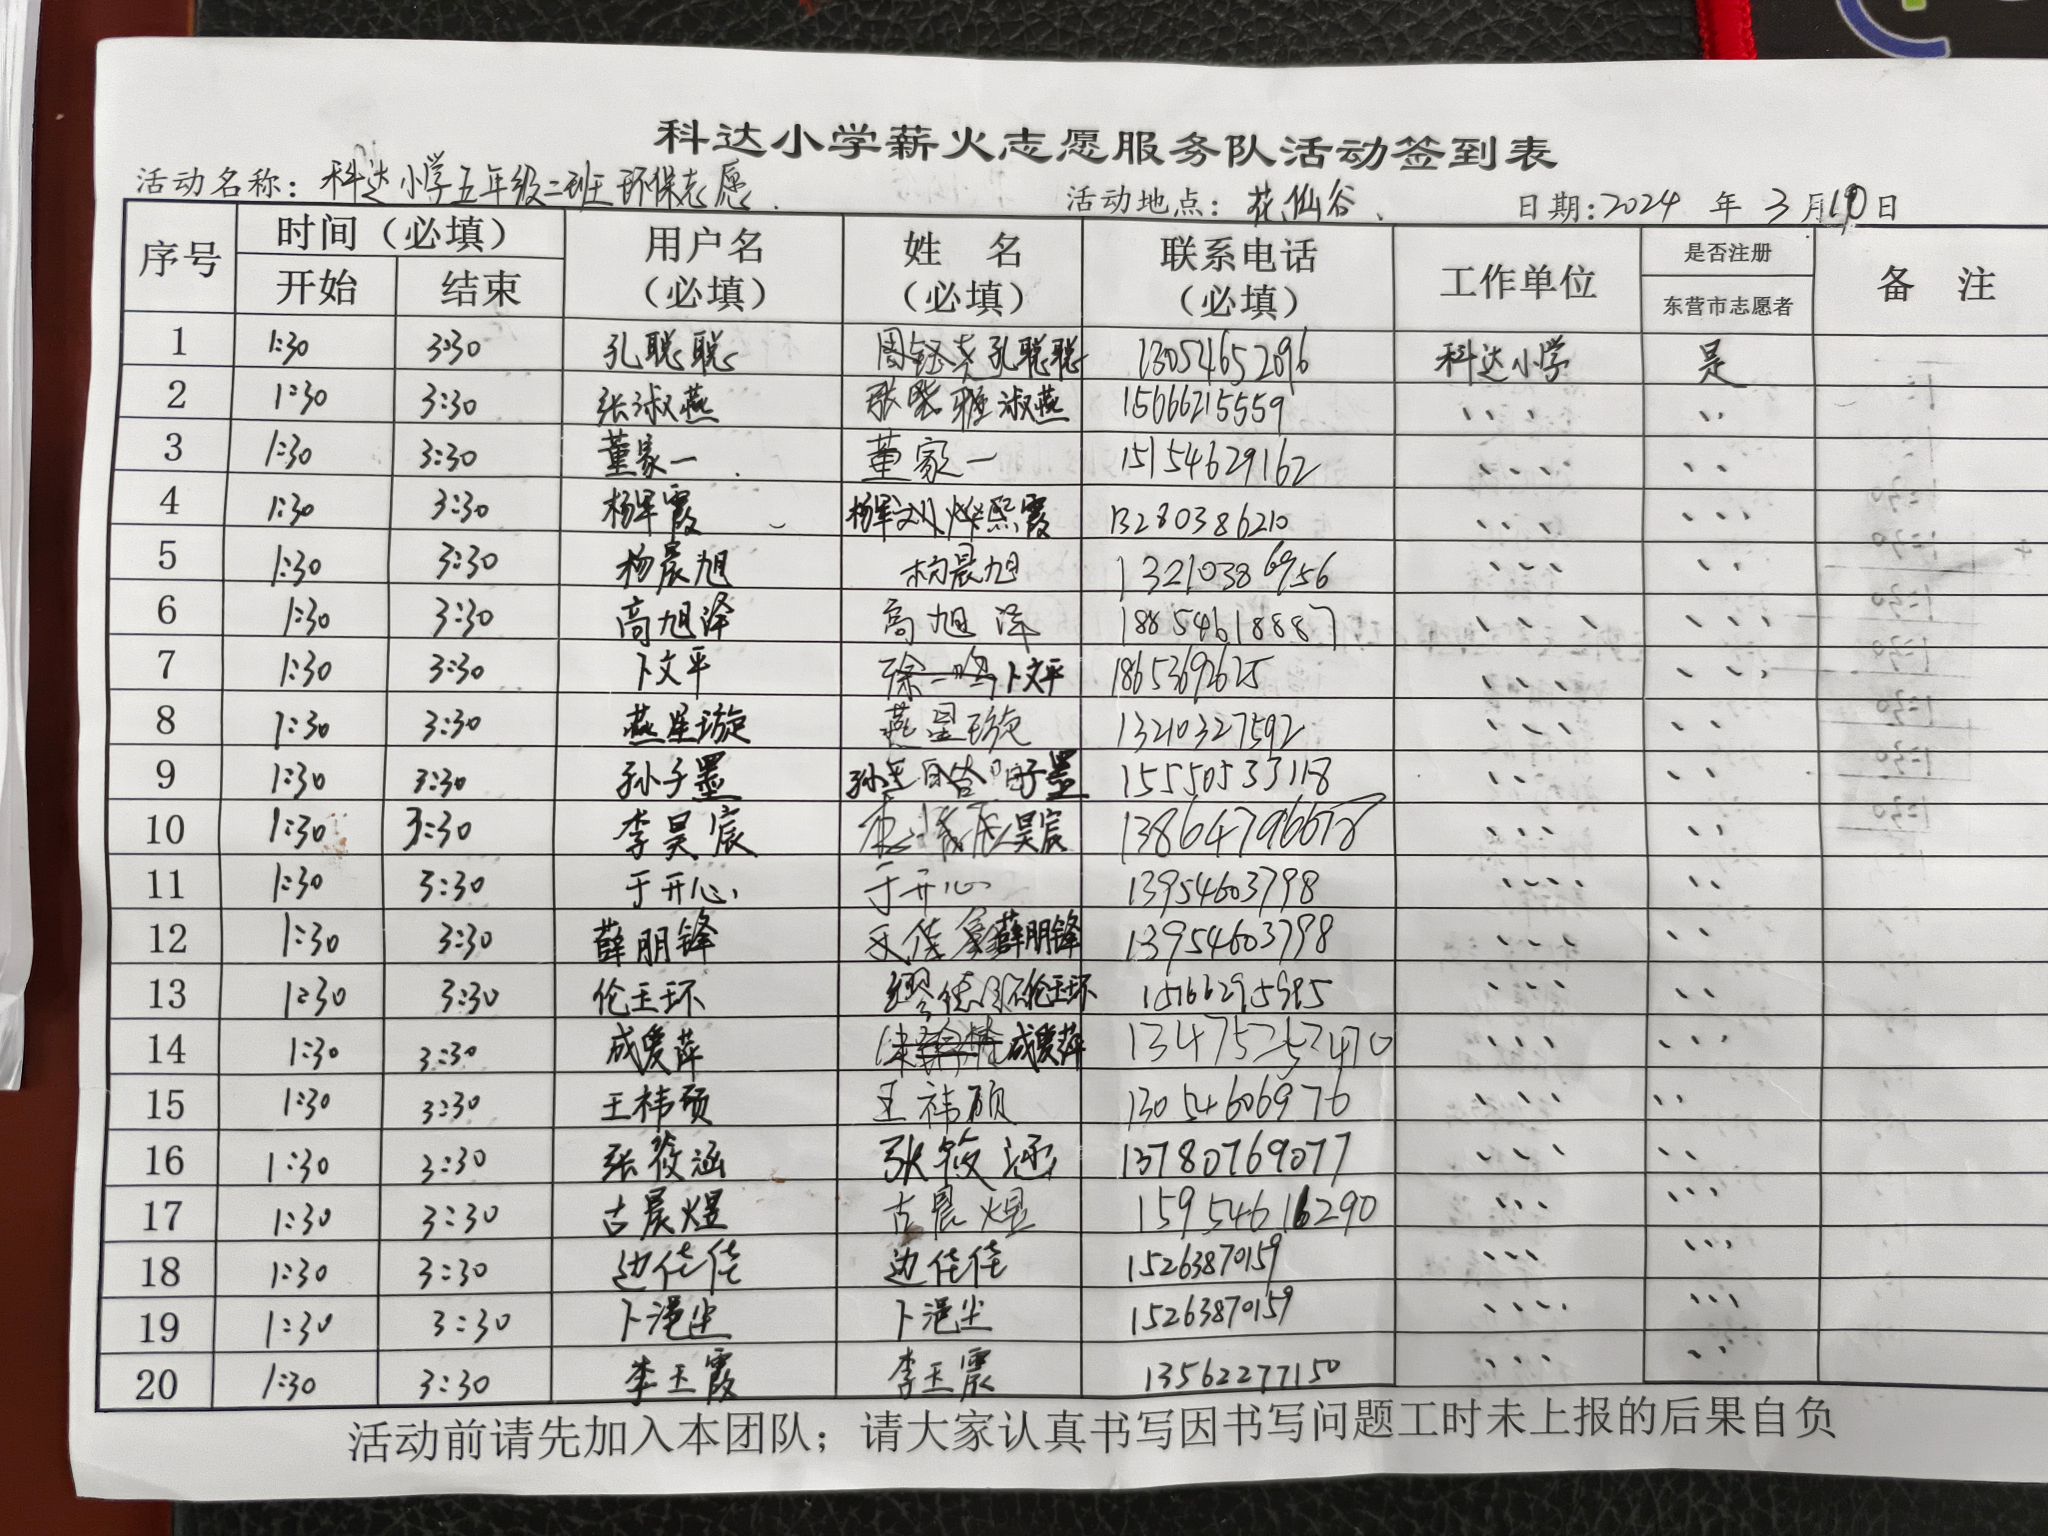 科达小学薪火志愿服务队活动签到表
活动名称：科达小学五年级二班环保志愿 活动地点：花仙谷、 日期：2024 年 3 月 日
序号 时间（必填） 用户名（必填） 姓 名（必填） 联系电话（必填） 工作单位 是否注册 备 注
开始 结束 东营市志愿者
1 1:30 3:30 孔聪聪 孔聪聪 13054652096 科达小学 是
2 1:30 3:30 张淑燕 淑燕 15666215559 、、、 、、
3 1:30 3:30 董家一 董家一 15154629162 、、、、 、、
4 1:30 3:30 杨军霞 13280386210 、、、 、、、
5 1:30 3:30 杨晨旭 杨晨旭 13210386956 、、、 、、
6 1:30 3:30 高旭泽 高旭泽 18854618887 、、、 、、、
7 1:30 3:30 卜文平 卜文平 、、、、 、、、
8 1:30 3:30 燕星璇 燕星璇 13210327592 、、、 、、
9 1:30 3:30 孙子墨 子墨 15550533118 、、 、、
10 1:30 3:30 李昊宸 昊宸 、、、 、、
11 1:30 3:30 于开心 于开心 13954603798 、、、、 、、
12 1:30 3:30 薛朋锋 薛朋锋 13954603798 、、、 、、
13 1:30 3:30 伦玉环 伦玉环 、、、 、、
14 1:30 3:30 成爱萍 成爱萍 、、、 、、、
15 1:30 3:30 王祎硕 王祎硕 13054606976 、、、 、、
16 1:30 3:30 张筱涵 张筱涵 13780769077 、、、 、、
17 1:30 3:30 古晨煜 古晨煜 15954616290 、、、 、、、
18 1:30 3:30 边佳佳 边佳佳 15263870159 、、、 、、、
19 1:30 3:30 卜浥尘 卜浥尘 15263870159 、、、、 、、、
20 1:30 3:30 李玉霞 李玉霞 13562277150 、、、 、、
活动前请先加入本团队；请大家认真书写因书写问题工时未上报的后果自负